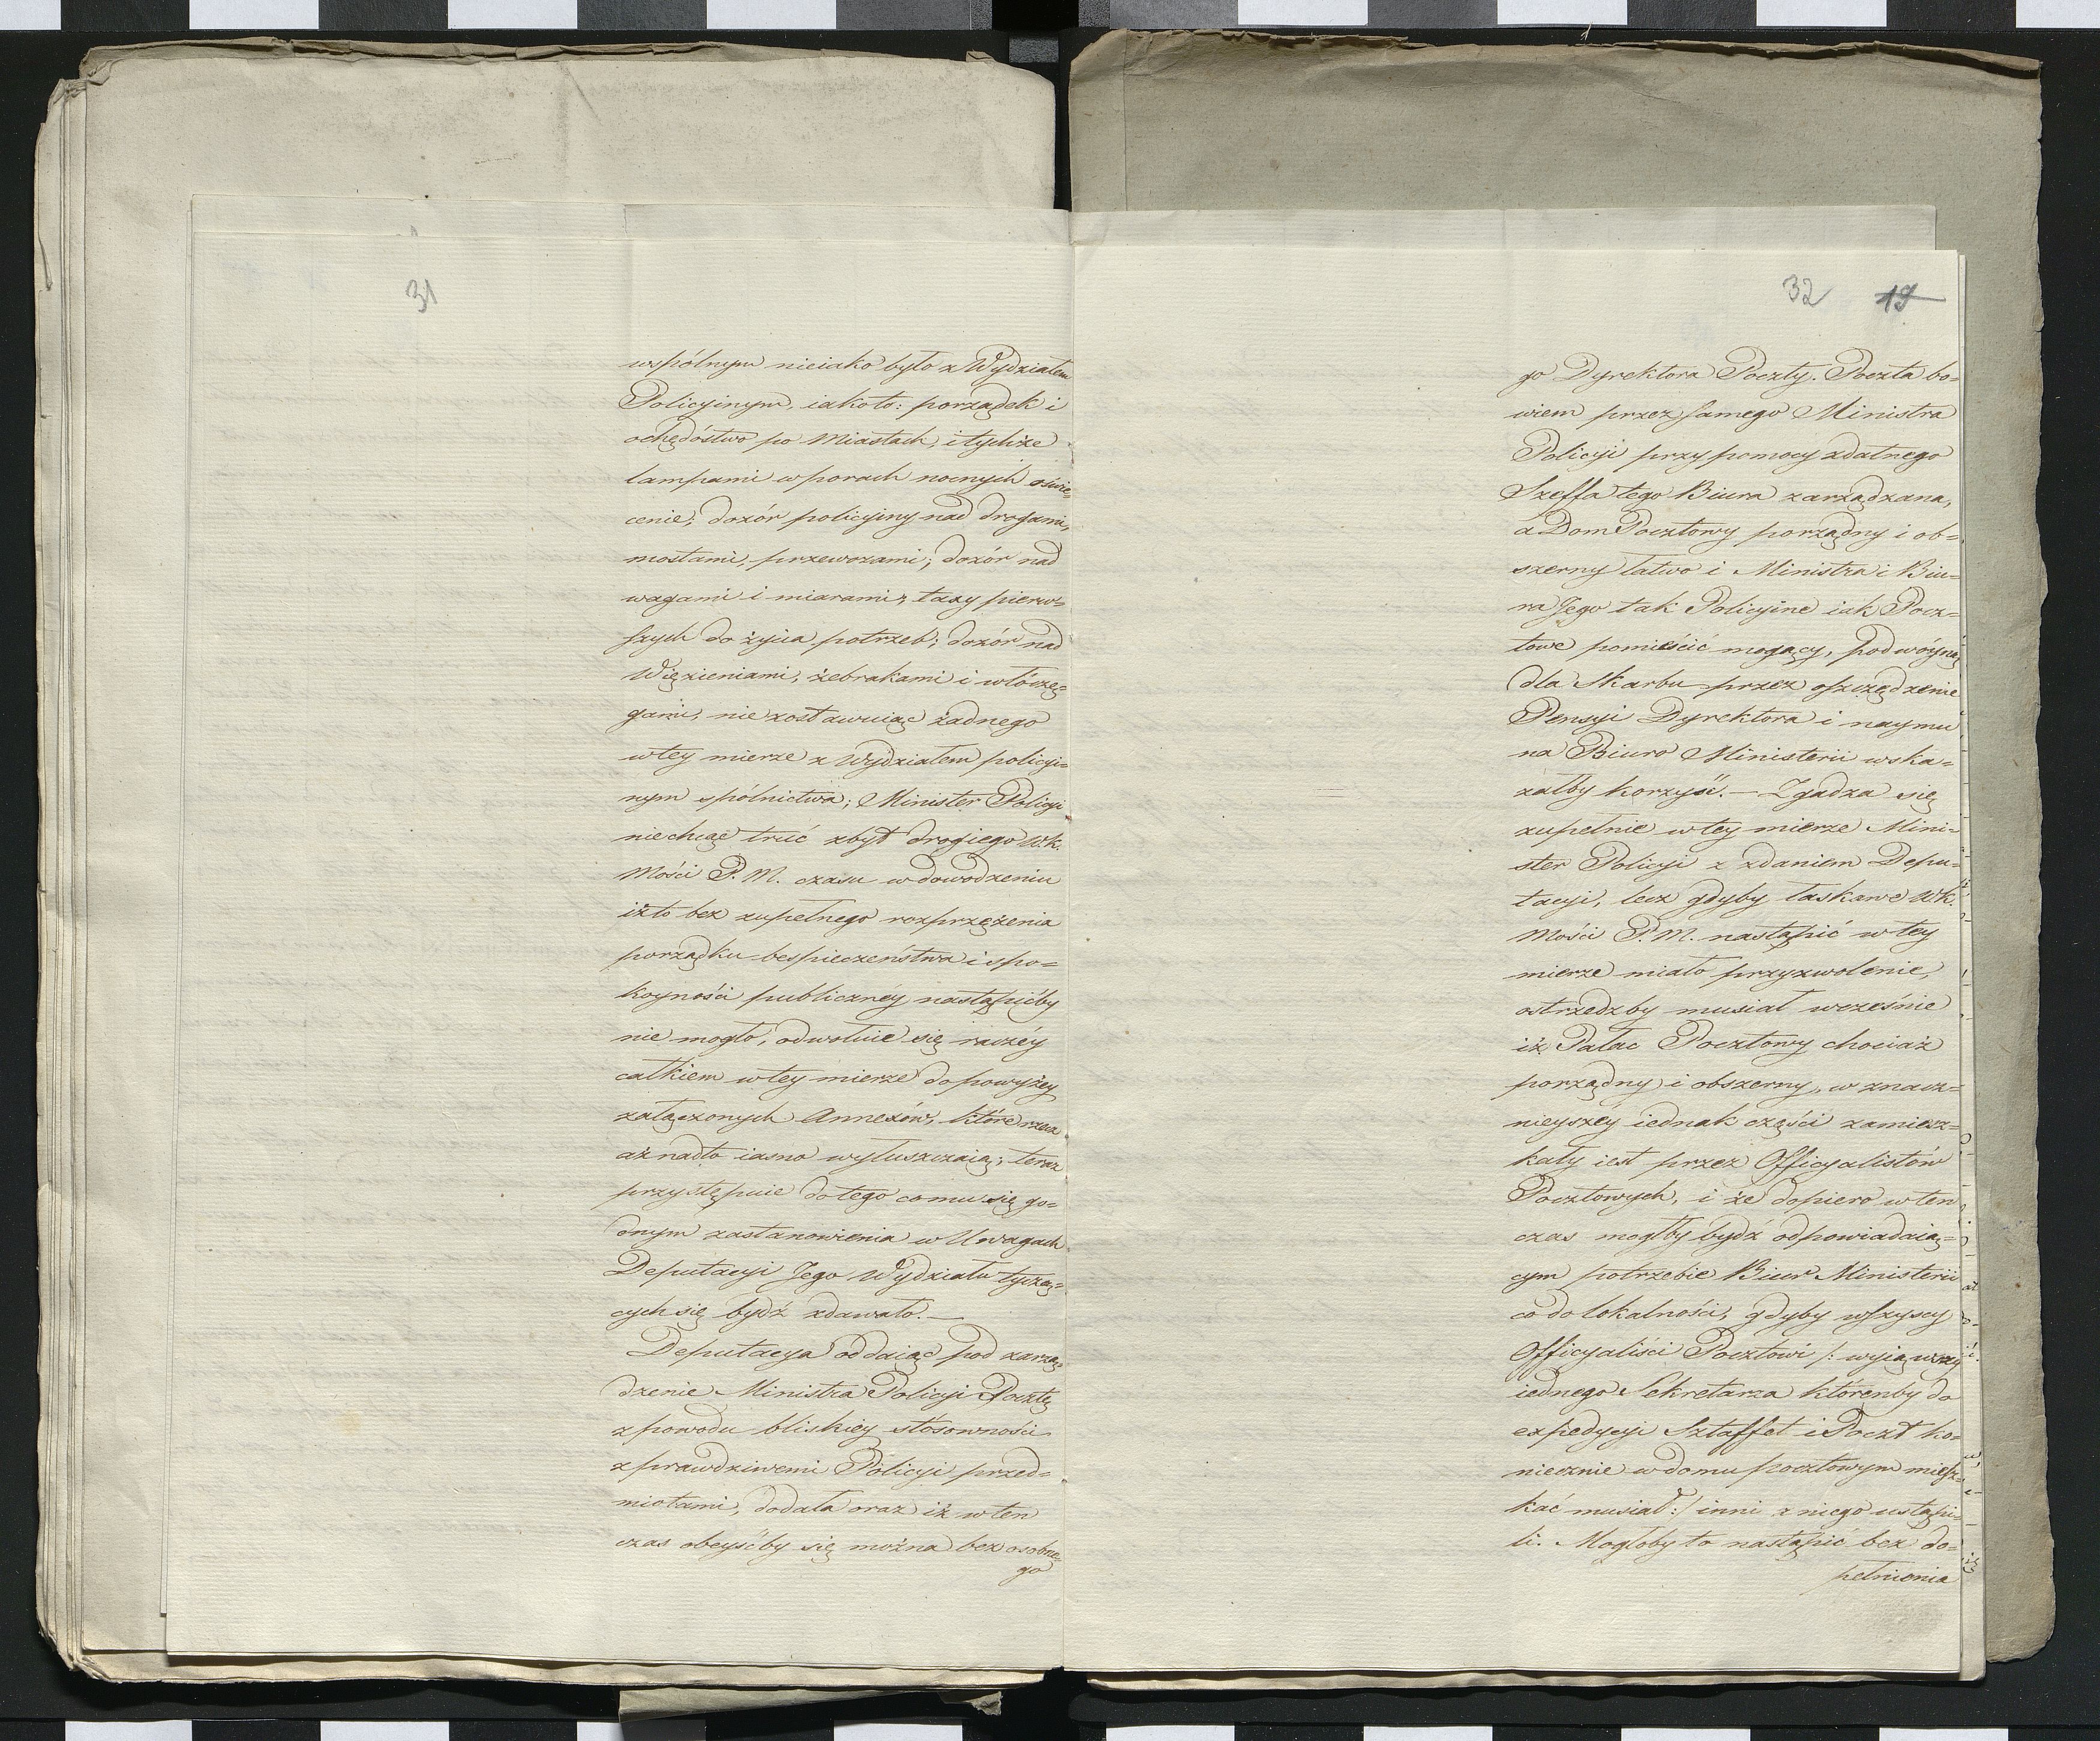 31
wspólnym nieiako było z Wydziałem
Policyinym, iakoto: porządek i
ochędóstwo po Miastach, i tychże
lampami w porach nocnych oświe=
cenie; dozór policyiny nad drogami,
mostami, przewozami; dozór nad
wagami i miarami, taxy pierw=
szych do życia potrzeb; dozór nad
Więzieniami, żebrakami i włóczę=
gami, nie zostawuiąc żadnego
w tey mierze z Wydziałem policyi=
nym spólnictwa; Minister Policyi
niechcąc truć zbyt drogiego W.K.
Mości P.M. czasu w dowodzeniu
iżto bez zupełnego rozprzężenia
porządku bespieczeństwa i spo=
koyności publicznéy nastąpićby
nie mogło, odwołuie się raczéy
całkiem w tey mierze do powyżey
załączonych Annexów, które rzecz
aż nadto iasno wyłuszczaią; teraz
przystępuie do tego co mu się go=
dnym zastanowienia w Uwagach
Deputacyi Jego Wydziału tyczą=
cych się bydź zdawało. —
Deputacya oddaiąc pod zarzą=
dzenie Ministra Policyi Pocztę
z powodu bliskiey stosowności
z prawdziwemi Policyi przed=
miotami, dodała oraz iż w ten
czas obeyśćby się można bez osobne=
go
32 19
go Dyrektora Poczty. Poczta bo=
wiem przez samego Ministra
Policyi przy pomocy zdatnego
Szeffa tego Biura zarządzana,
a Dom Pocztowy porządny i ob=
szerny łatwo i Ministra i Biu=
ra Jego tak Policyine iak Pocz=
towe pomieścić mogący, podwóyną
dla Skarbu przez oszczędzenie
Pensyi Dyrektora i naymu
na Biuro Ministerii wska=
załby korzyść. — Zgadza się
zupełnie w tey mierze Mini=
ster Policyi z zdaniem Depu=
tacyi, lecz gdyby łaskawe W.K.
Mości P.M. nastąpić w tey
mierze miało przyzwolenie,
ostrzedzby musiał wcześnie
iż Pałac Pocztowy chociaż
porządny i obszerny, w znacz=
nieyszéy iednak części zamiesz=
kały iest przez Officyalistów
Pocztowych, i że dopiero w ten
czas mógłby bydź odpowiadaią=
cym potrzebie Biur Ministerii
co do lokalności, gdyby wszyscy
Officyaliści Pocztowi /: wyiąwszy
iednego Sekretarza którenby do
expedycyi Sztaffet i Poczt ko=
niecznie w domu pocztowym miesz=
kać musiał :/ inni z niego ustąpi=
li. Mogłoby to nastąpić bez do=
pełnienia